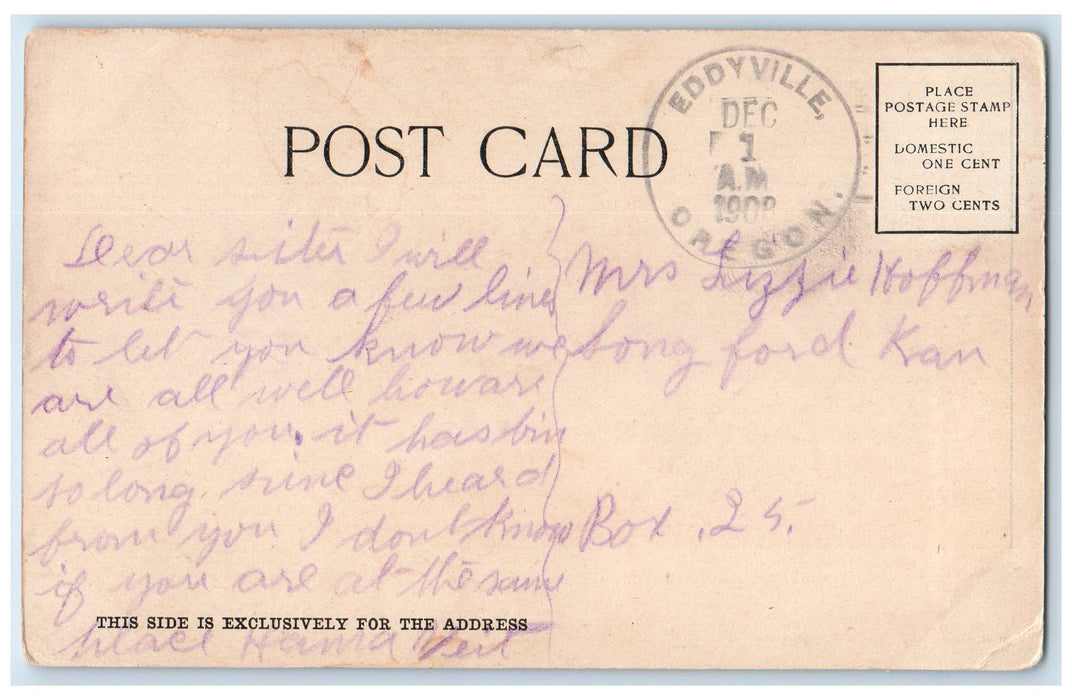 POST CARD
EDDYVILLE,
DEC
1
A.M
1908
OREGON.
PLACE
POSTAGE STAMP
HERE
DOMESTIC
ONE CENT
FOREIGN
TWO CENTS
Dear sister I will
write you a few lines
to let you know we
are all well howare
all of you. it has bin
so long. sinc I heard
from you I dont know
if you are at the same
place Hama Veit
Mrs Lizzie Hoffman
Long ford Kan
Box . 25.
THIS SIDE IS EXCLUSIVELY FOR THE ADDRESS